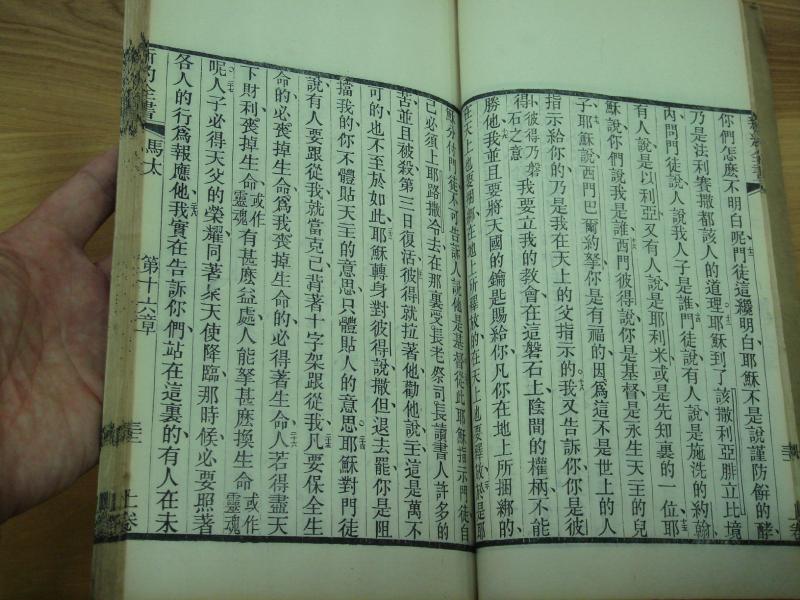 你們怎麽不明白呢門徒這纔明白耶穌不是說謹防餅的酵
乃是法利賽撒都該人的道理耶穌到了該撒利亞腓立比境
內問門徒說人說我人子是誰門徒說有人說是施洗的約翰
有人說是以利亞又有人說是耶利米或是先知裏的一位耶
穌說你們說我是誰西門彼得說你是基督是永生天主的兒
子耶穌說西門巴爾約拏你是有福的因爲這不是世上的人
指示給你的乃是我在天上的父指示的我又告訴你你是彼
得彼得乃磐石之意我要立我的教會在這磐石上陰間的權柄不能
勝他我並且要將天國的鑰匙賜給你凡你在地上所捆綁的
在天上也要捆綁在地上所釋放的在天上也要釋放於是耶
穌分付門徒不可告訴人說他是基督從此耶穌指示門徒自
己必須上耶路撒冷去在那裏受長老祭司長讀書人許多的
苦並且被殺第三日復活彼得就拉著他勸他說主這是萬不
可的也不至於如此耶穌轉身對彼得說撒但退去罷你是阻
擋我的你不體貼天主的意思只體貼人的意思耶穌對門徒
說有人要跟從我就當克己背著十字架跟從我凡要保全生
命的必喪掉生命爲我喪掉生命的必得著生命人若得盡天
下財利喪掉生命或作靈魂有甚麽益處人能拏甚麽換生命或作靈魂
呢人子必得天父的榮耀同著衆天使降臨那時候必要照著
各人的行爲報應他我實在告訴你們站在這裏的有人在未
新約全書 馬太 第十六章 三十二 上卷